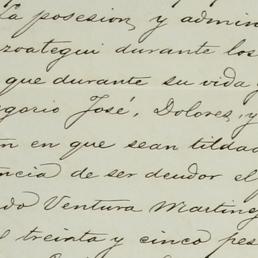 la posesion, y admin
zoategui durante los
que durante su vida y
egorio José, Dolores, y
n en que sean tildad
encia de ser deudor el
do Ventura Marting
l treinta y cinco pes